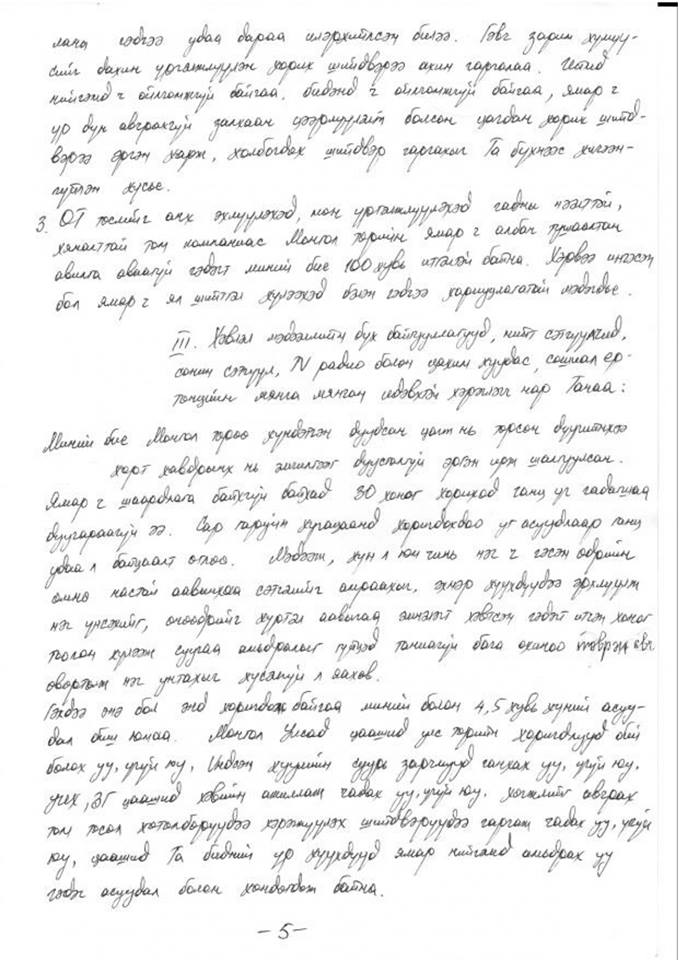 лань гэдгээ удаа дараа илэрхийлсэн билээ. Гэвч зарим хүмүү-
сийг дахин үргэлжлүүлэн хорих шийдвэрээ ахин гаргалаа.
нийгэмд ч ойлгомжгүй байгаа. бидэнд ч ойлгомжгүй байгаа, ямар ч
үр дүн авчрахгүй залхаан цээрлүүлэлт болсон цагдан хорих шийд-
вэрээ эргэн харж, холбогдох шийдвэр гаргахыг Та бүхнээс хичээн-
гүйлэн хүсье.
3. ОТ төслийг анх эхлүүлэхэд, мөн үргэлжлүүлэхэд гадны нээлттэй,
хяналттай том компаниас Монгол төрийн ямар ч албан тушаалтан
авилга аваагүй гэдэгт миний бие 100 хувь итгэлтэй байна. Хэрвээ ингэсэн
бол ямар ч ял шийтгэл хүлээхэд бэлэн гэдгээ хариуцлагатай мэдэгдье.
III. Хэвлэл мэдээллийн бүх байгууллагууд, нийт сэтгүүлчид,
сонин сэтгүүл, TV радио болон цахим хуудас, сошиал ер-
төнцийн мянга мянган идэвхтэй хэрэглэгч нар Танаа:
Миний бие Монгол төрөө хүндэтгэн дуудсан цагт нь төрсөн дүүгийнхээ
хорт хавдрынх нь эмчилгээг дуусгалгүй эргэн ирж шалгуулсан.
Ямар ч шаардлага байхгүй байхад 30 хоног хорихад ганц үг гадагшаа
дуугараагүй ээ. Сар гаруйн хугацаанд хоригдохдоо уг асуудлаар ганц
удаа л байцаалт өглөө. Мэдээж, хүн л юм чинь нэг ч гэсэн өдрийн
өмнө настай аавынхаа сэтгэлийг амраахыг, эхнэр хүүхдүүдээ эрхлүүлж
нэг үнсэхийг, өнөөдрийг хүртэл аавыгаа эмнэлэгт хэвтсэн гэдэгт итгэн хоног
тоолон хүлээж суугаа амьдралыг гүйцэд таниагүй бага охиноо тэврэн авч
өвөртөлж нэг унтахыг хүсэлгүй л яахав.
Гэхдээ энэ бол энд хоригдож байгаа миний болон 4,5 хувь хүний асуу-
дал биш юмаа. Монгол Улсад цаашид улс төрийн хоригдлууд бий
болох уу, үгүй юу, Үндсэн хуулийн суурь зарчмууд ганхах уу, үгүй юу,
УИХ, ЗГ цаашид хэвийн ажиллаж чадах уу, үгүй юу. хөгжлийг авчрах
том төсөл хөтөлбөрүүдээ хэрэгжүүлэх шийдвэрүүдээ гаргаж чадах уу, үгүй
юу, цаашид Та бидний үр хүүхдүүд ямар нийгэмд амьдрах уу
гэдэг асуудал болон хөндөгдөж байна.
-5-